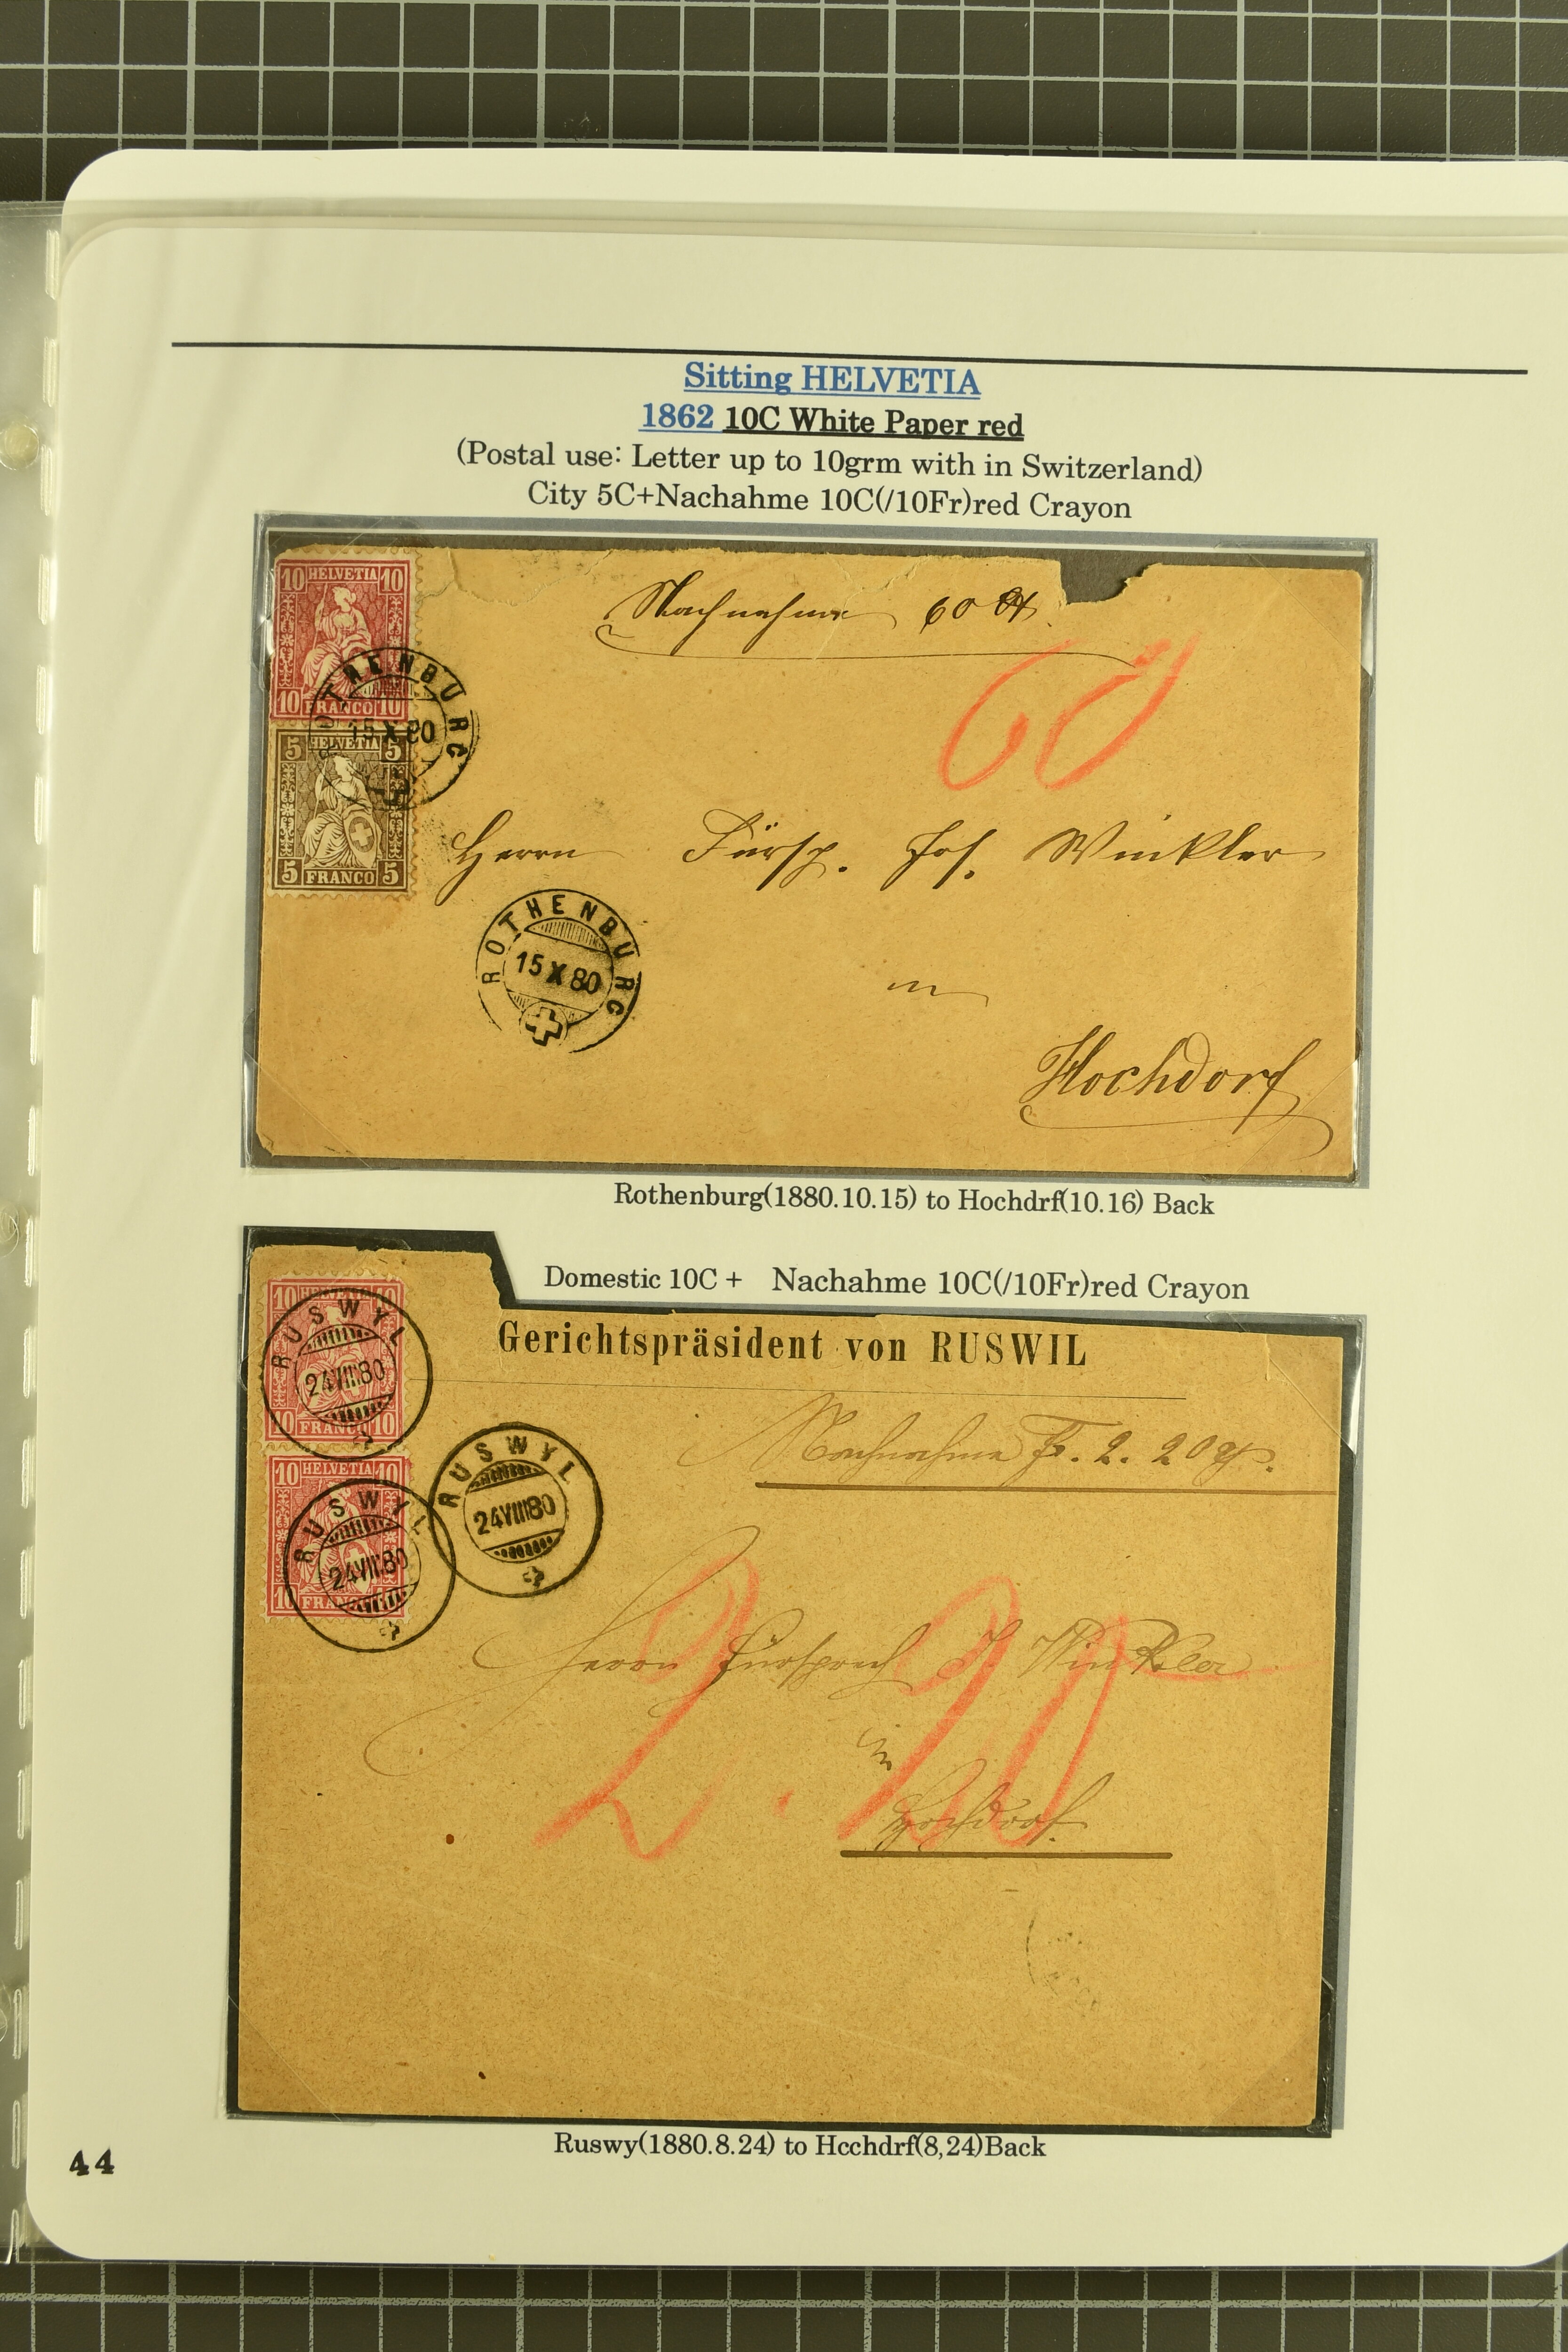 Sitting HELVETIA
1862 10C White Paper red
(Postal use: Letter up to 10grm with in Switzerland)
City 5C+Nachahme 10C(/10Fr)red Crayon
10 HELVETIA 10
10 FRANCO 10
5 HELVETIA 5
5 FRANCO 5
ROTHENBURG
15 X 80
Nachnahme 60
60
Herrn Fürsp. Jos. Winkler
ROTHENBURG
15 X 80
in
Hochdorf
Rothenburg(1880.10.15) to Hochdrf(10.16) Back
Domestic 10C + Nachahme 10C(/10Fr)red Crayon
10 HELVETIA 10
10 FRANCO 10
RUSWYL
24 VIII 80
Gerichtspräsident von RUSWIL
Nachnahme Fr. 2. 20
10 HELVETIA 10
10 FRANCO
RUSWYL
24 VIII 80
RUSWYL
24 VIII 80
2.20
Herrn Fürsprech J. Winkler
in
Hochdorf.
Ruswy(1880.8.24) to Hcchdrf(8,24)Back
44